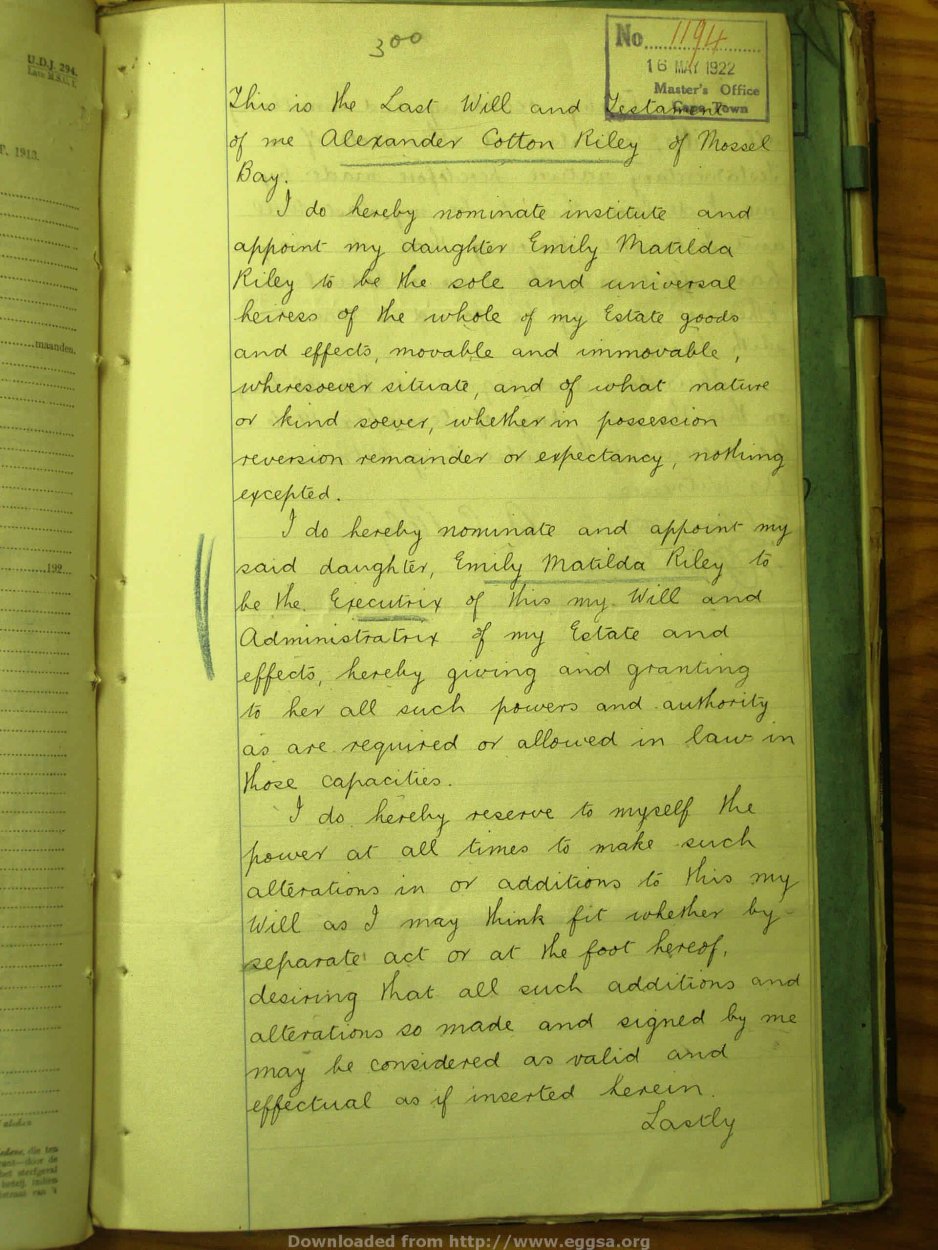 300
No 1194
16 MAY 1922
Master's Office
Cape Town
This is the Last Will and Testament
of me Alexander Cotton Riley of Mossel
Bay.
I do hereby nominate institute and
appoint my daughter Emily Matilda
Riley to be the sole and universal
heiress of the whole of my Estate goods
and effects, movable and immovable,
wheresoever situate, and of what nature
or kind soever, whether in possession
reversion remainder or expectancy, nothing
excepted.
I do hereby nominate and appoint my
said daughter, Emily Matilda Riley to
be the Executrix of this my Will and
Administratrix of my Estate and
effects, hereby giving and granting
to her all such powers and authority
as are required or allowed in law in
those capacities.
I do hereby reserve to myself the
power at all times to make such
alterations in or additions to this my
Will as I may think fit whether by
separate act or at the foot hereof,
desiring that all such additions and
alterations so made and signed by me
may be considered as valid and
effectual as if inserted herein.
Lastly
U.D.J. 294.
1913.
maanden.
192
Downloaded from http://www.eggsa.org